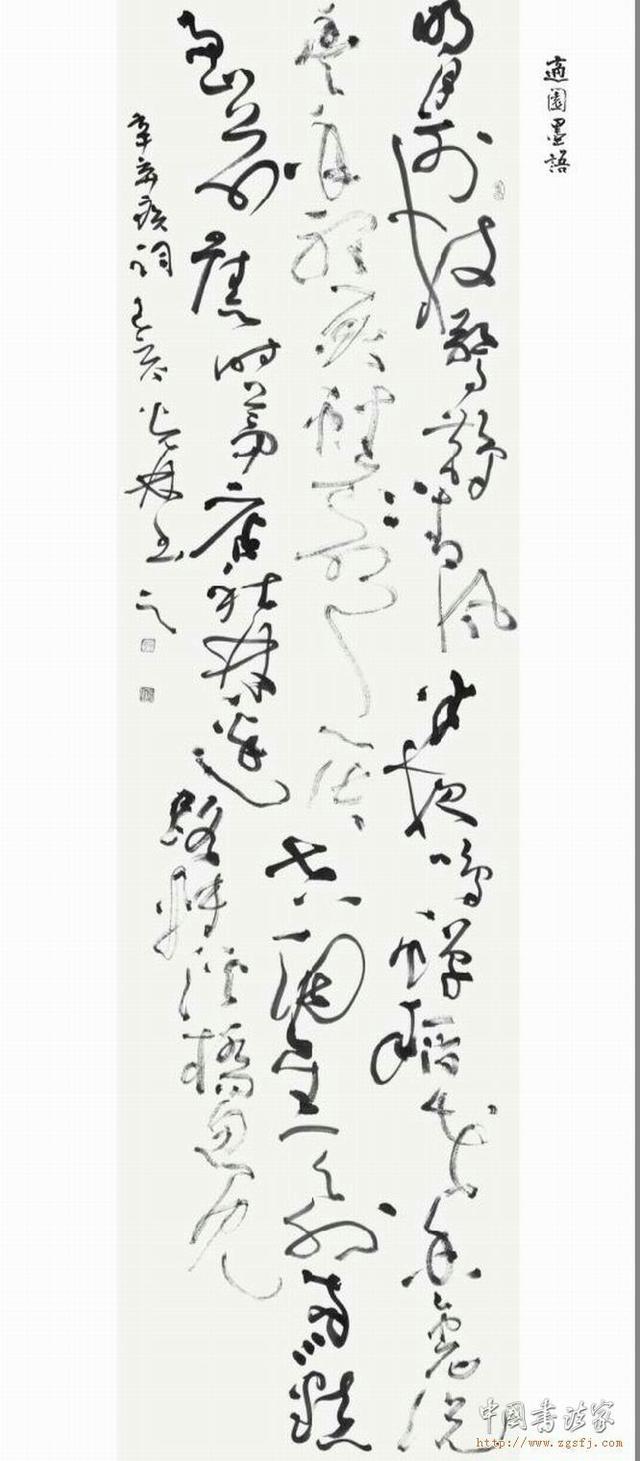 適園墨語
明月別枝驚鵲清風半夜鳴蟬稻花香裏說
豐年聽取蛙聲一片七八個星天外兩三點
雨山前舊時茅店社林邊路轉溪橋忽見
辛棄疾詞 己亥 林書之
中国书法家
http://www.zgsfj.com